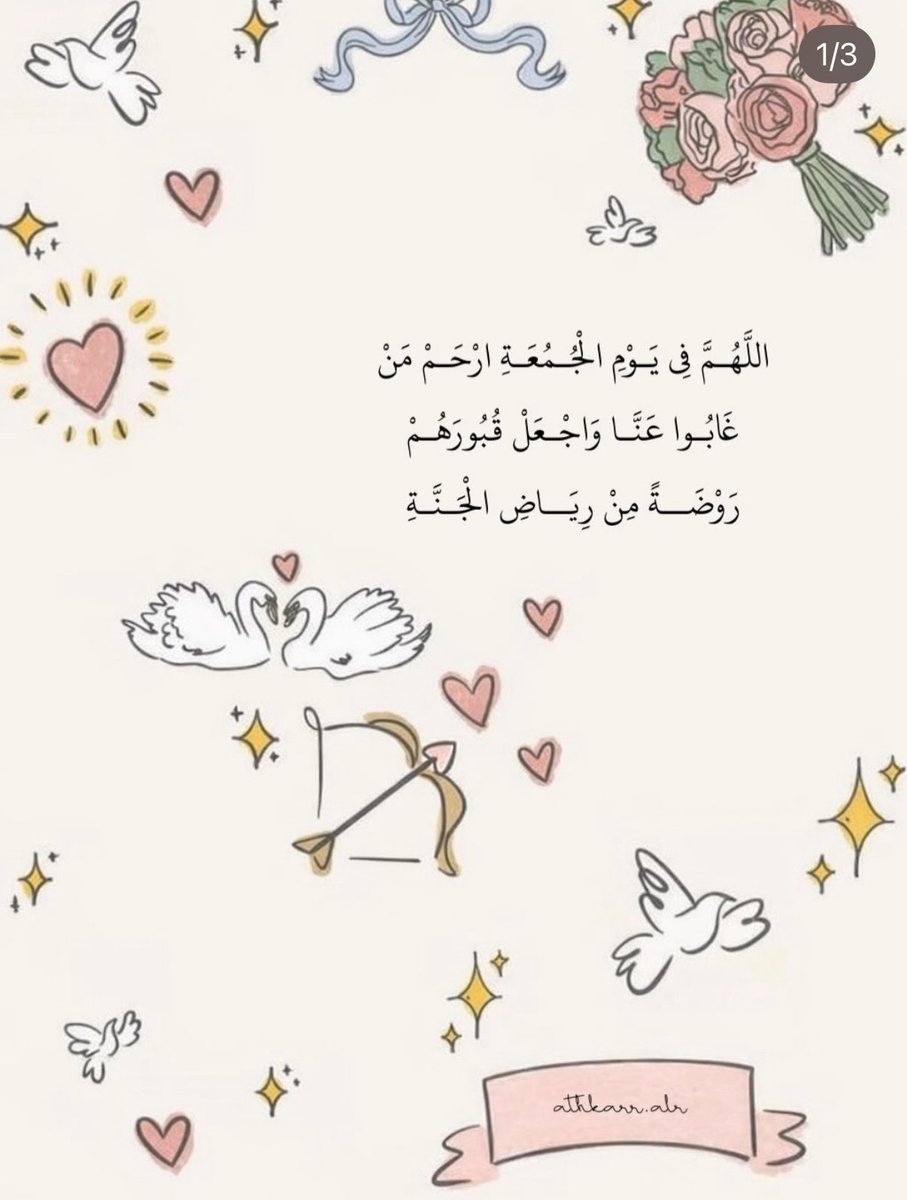 1/3
اللَّهُمَّ فِي يَوْمِ الْجُمُعَةِ ارْحَمْ مَنْ
غَابُوا عَنَّا وَاجْعَلْ قُبُورَهُمْ
رَوْضَةً مِنْ رِيَاضِ الْجَنَّةِ
athkarr.alr